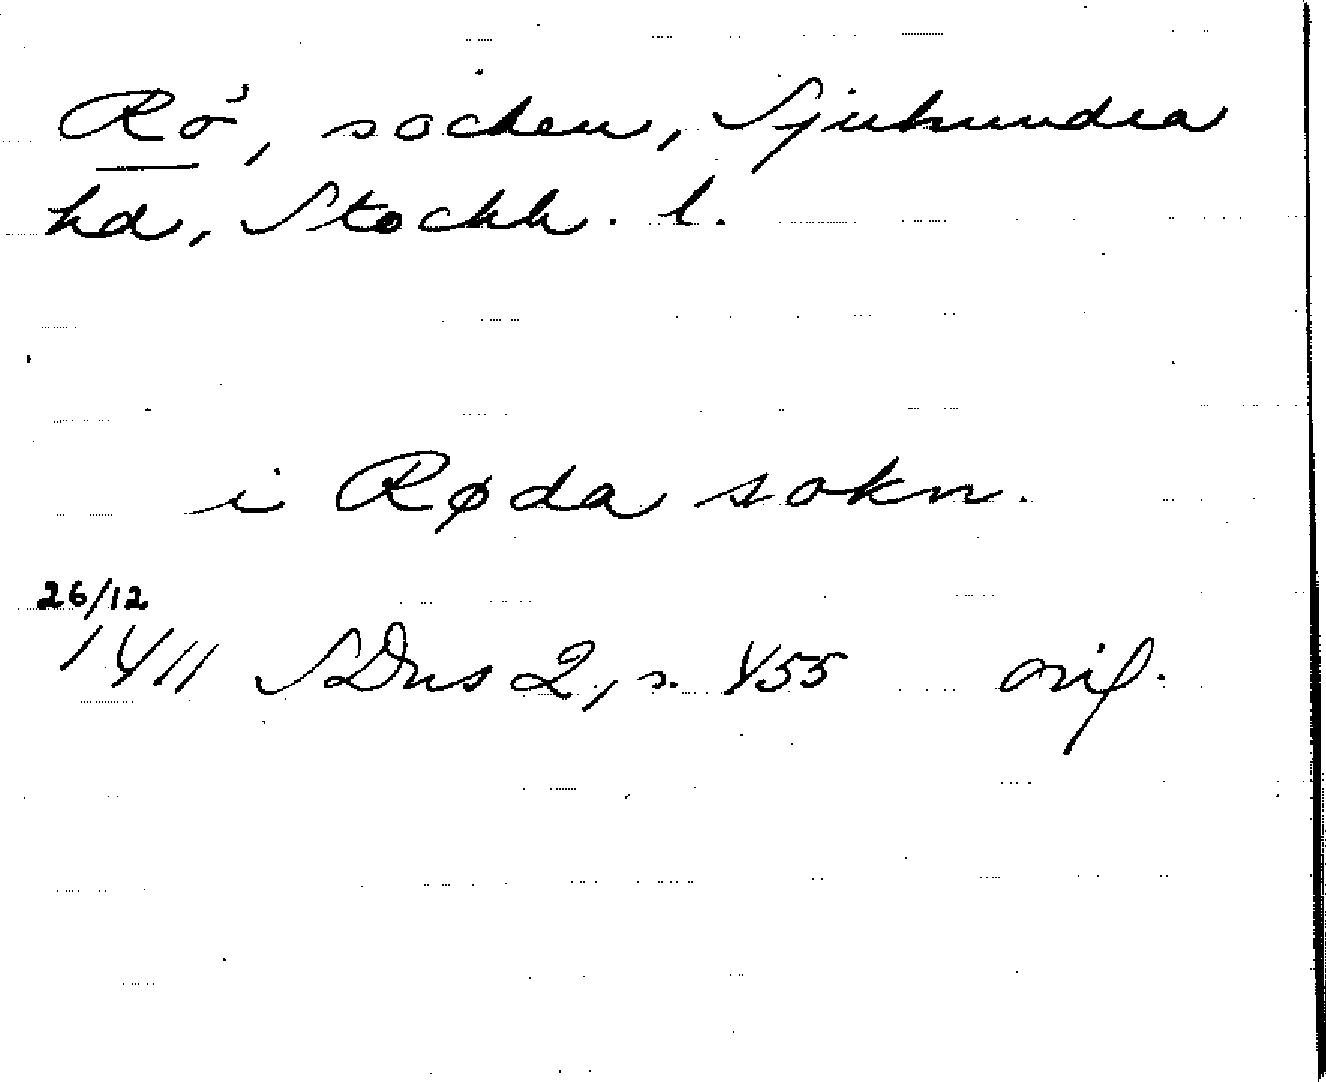 Rö, socken, Sjuhundra
hd, Stockh. l.
i Røda sokn.
26/12
1411 SDns 2, s. 455 orig.